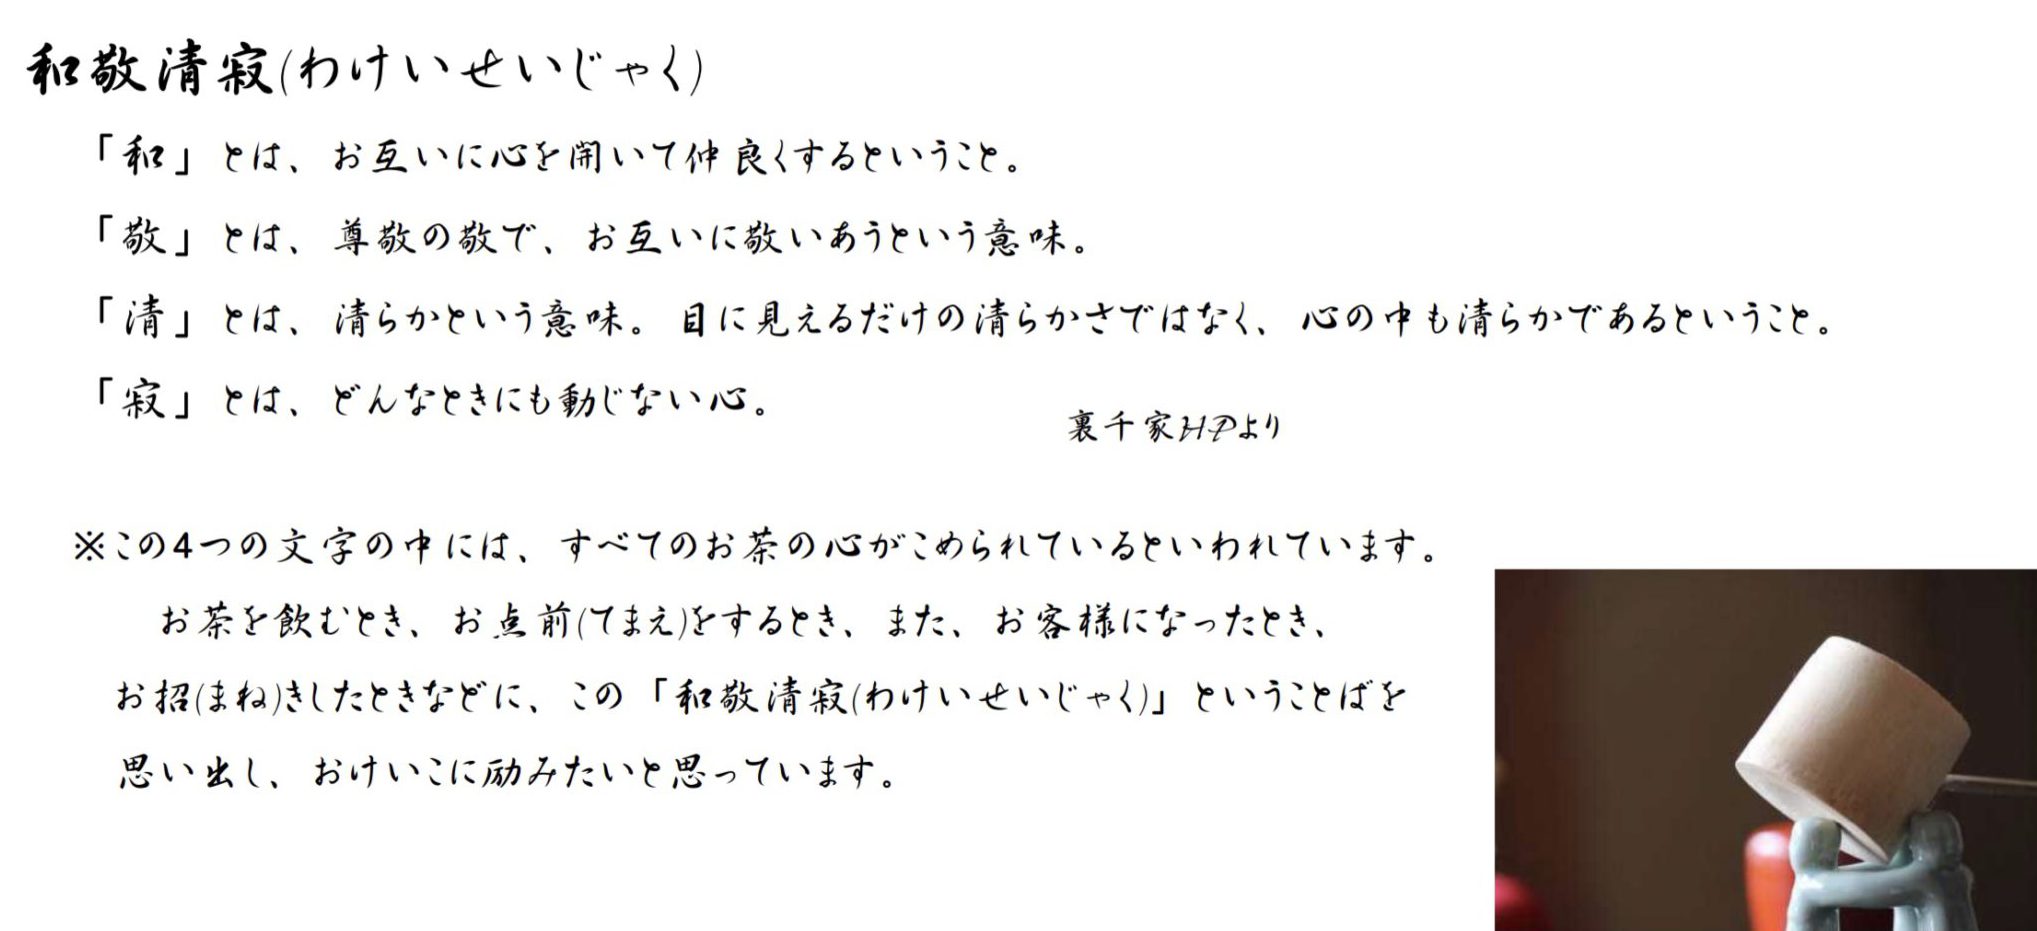 和敬清寂(わけいせいじゃく)
「和」とは、お互いに心を開いて仲良くするということ。
「敬」とは、尊敬の敬で、お互いに敬いあうという意味。
「清」とは、清らかという意味。目に見えるだけの清らかさではなく、心の中も清らかであるということ。
「寂」とは、どんなときにも動じない心。
裏千家HPより
※この4つの文字の中には、すべてのお茶の心がこめられているといわれています。
お茶を飲むとき、お点前(てまえ)をするとき、また、お客様になったとき、
お招(まね)きしたときなどに、この「和敬清寂(わけいせいじゃく)」ということばを
思い出し、おけいこに励みたいと思っています。